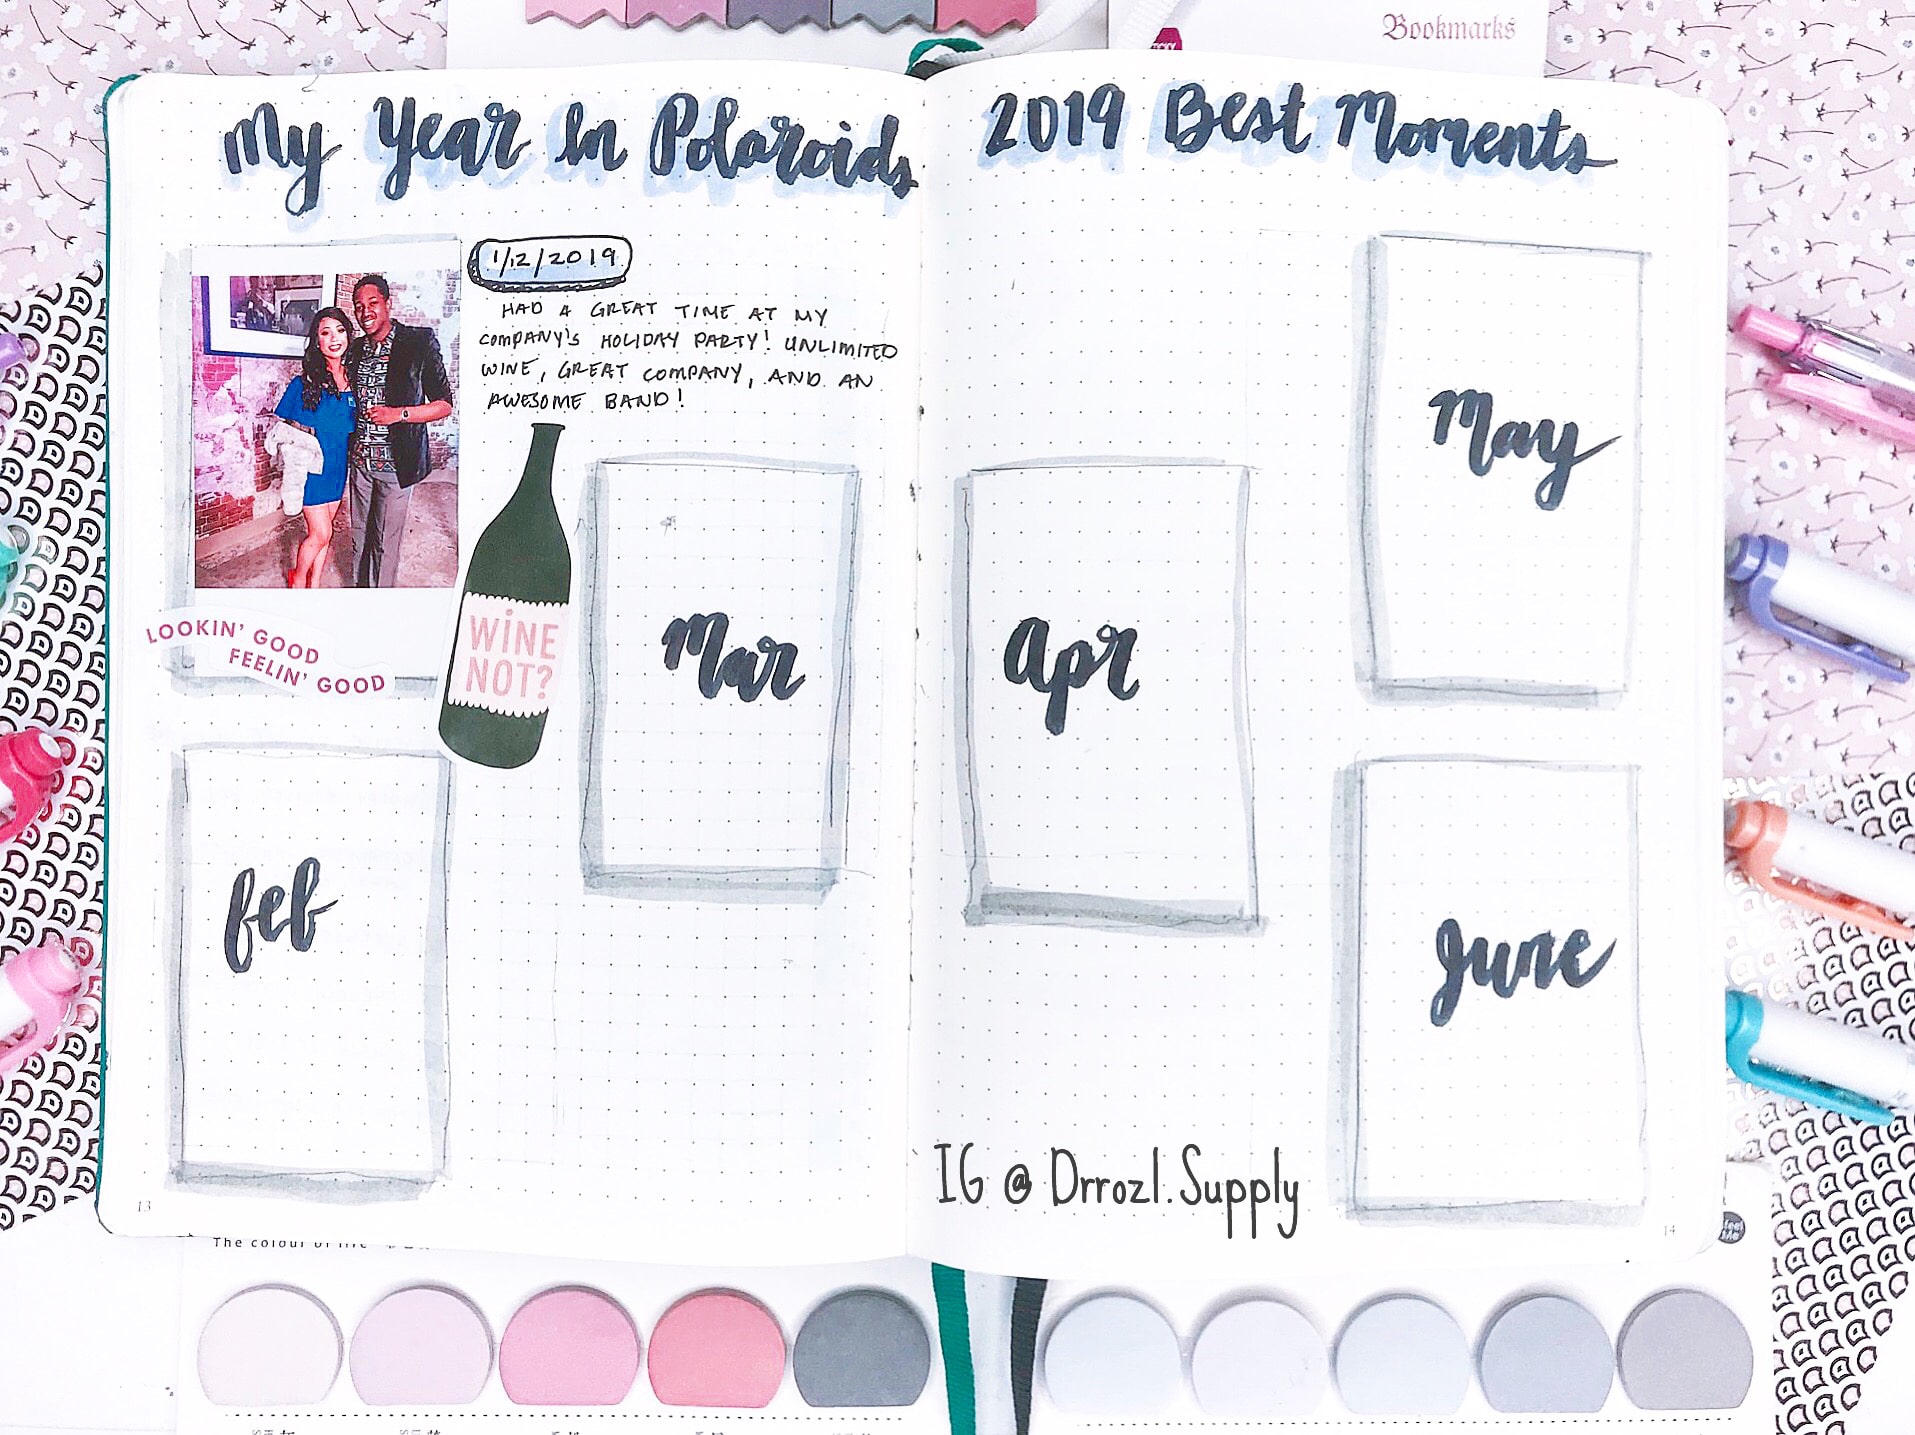 Bookmarks
My Year In Polaroids
2019 Best Moments
1/12/2019
HAD A GREAT TIME AT MY
COMPANY'S HOLIDAY PARTY! UNLIMITED
WINE, GREAT COMPANY, AND AN
AWESOME BAND!
LOOKIN' GOOD
FEELIN' GOOD
WINE
NOT?
Feb
Mar
Apr
May
June
IG @ Drrozl.Supply
13
14
The colour of life